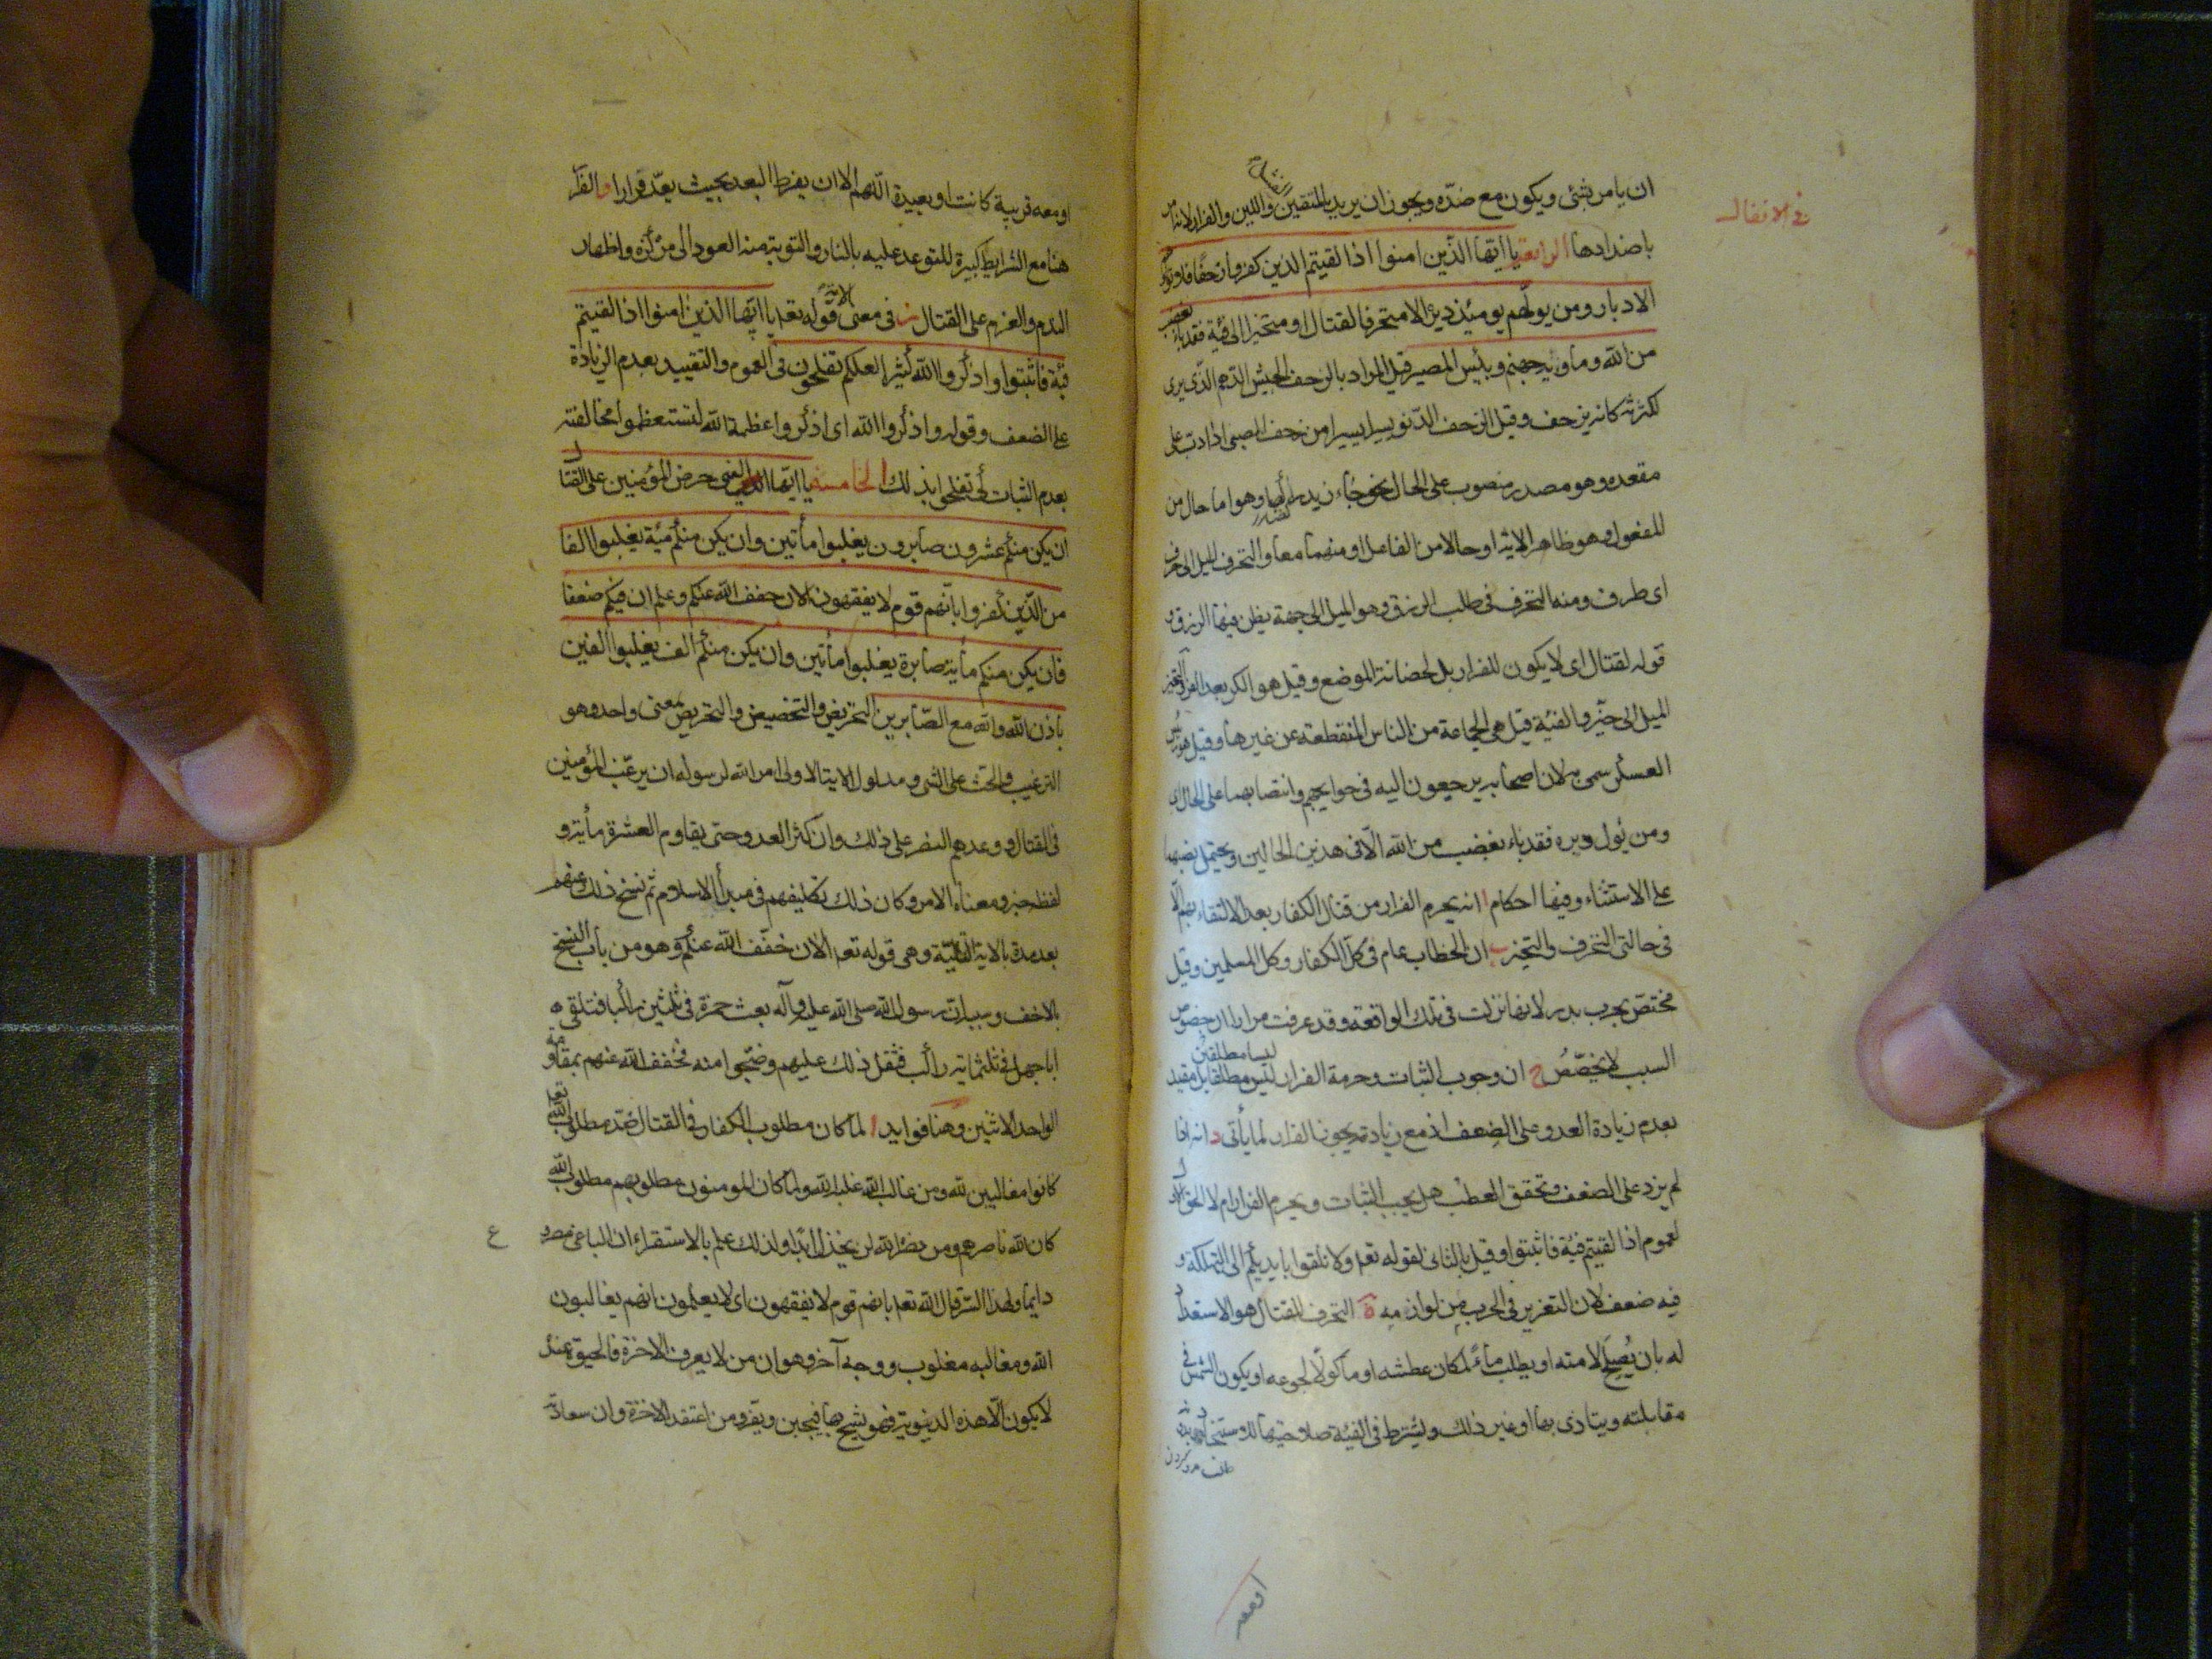 في الانفال
ان يامر بشئ ويكون مع ضدّه ويجوز ان يريد بالمتقين واللين والفرار لانه امر
باضدادها الرابعة يا ايّها الذين امنوا اذا لقيتم الذين كفروا زحفا فلا تولوهم
الادبار ومن يولّهم يومئذ دبره الا متحرفا لقتال او متحيزا الى فئة فقد باء بغضب
من الله وماويه جهنم وبئس المصير قيل المراد بالزحف الجيش الدهم الذى يرى
لكثرته كانه يزحف وقيل الزحف الدّنو يسيرا يسيرا من زحف الصبى اذا دبّ على
مقعده وهو مصدر منصوب على الحال نحو جاء زيد راكبا وهو اما حال من
المفعول وهو ظاهر الاية او حالا من الفاعل او منهما معا والتحرف الميل الى حرف
اى طرف ومنه التحرف فى طلب الرزق وهو الميل الى جهة يظن فيها الرزق و
قوله لقتال اى لا يكون للفرار بل لحضانة الموضع وقيل هو الكر بعد الفر والتحيز
الميل الى حيّز والفئة قيل هى الجماعة من الناس المنقطعة عن غيرها وقيل هو رئيس
العسكر سمى به لان اصحابه يرجعون اليه فى حوايجهم وانتصابهما على الحال اى
ومن يول دبره فقد باء بغضب من الله الّا فى هذين الحالين ويحتمل نصبهما
على الاستثناء وفيها احكام ا انه يحرم الفرار من قتال الكفار بعد الالتقاء بهم الّا
فى حالتى التحرف والتحيز ب ان الخطاب عام فى كلّ الكفار وكل المسلمين وقيل
مختصّ بحرب بدر لانها نزلت فى تلك الواقعة وقد عرفت مرارا ان خصوص
السبب لا يخصّصُ ج ان وجوب الثبات وحرمة الفرار ليسا مطلقين بل مقيد
بعدم زيادة العدو على الضعف اذ مع زيادته يجوز الفرار لما يأتى د انه اذا
لم يزد على الضعف وتحقق العطب هل يجب الثبات ويحرم الفرار ام لا الحق الاول
لعموم اذا لقيتم فئة فاثبتوا وقيل بالثانى لقوله تعا ولا تلقوا بايديكم الى التهلكة و
فيه ضعف لان التغرير فى الحرب من لوازمه ه التحرف للقتال هو الاستعداد
له بان يُصلح لامته او يطلب ماءً لمكان عطشه او مأكولا لجوعه او يكون الشمس فى
مقابلته ويتاذى بها او غير ذلك ويشترط فى الفئة صلاحيتها للاستنجاد
طلب مدد كردن
او معه
او معه قريبة كانت او بعيدة اللّهم الا ان يفرط البعد بحيث يعدّ فرارا و الفرار
هنا مع الشرايط كبيرة للتوعد عليه بالنار والتوبة منه العود الى مركزه واظهار
الندم والعزم على القتال ز فى معنى الاية قوله تعا يا ايّها الذين امنوا اذا لقيتم
فئة فاثبتوا واذكروا الله كثيرا لعلكم تفلحون فى العموم والتقييد بعدم الزيادة
على الضعف وقوله واذكروا الله اى اذكروا عظمة الله لتستعظموا مخالفته
بعدم الثبات لتفلحوا بذلك الخامسة يا ايّها النبى حرض المؤمنين على القتال
ان يكن منكم عشرون صابرون يغلبوا مأتين وان يكن منكم مئة يغلبوا الفا
من الذين كفروا بانّهم قوم لا يفقهون الان خفف الله عنكم وعلم ان فيكم ضعفا
فان يكن منكم مأية صابرة يغلبوا مأتين وان يكن منكم الف يغلبوا الفين
باذن الله والله مع الصّابرين التحريض والتحضيض والتحريص بمعنى واحد وهو
الترغيب والحث على الشى ومدلول الاية الاولى امر الله لرسوله ان يرغب المؤمنين
فى القتال ووعدهم النصر على ذلك وان كثر العدو حتى يقاوم العشرة مأية و
لفظه خبر ومعناه الامر وكان ذلك تكليفهم فى مبدأ الاسلام ثم نسخ ذلك عنهم
بعد مدة بالاية الثانية وهى قوله تعا الان خفّف الله عنكم وهو من باب النسخ
بالاخف وسببه ان رسول الله صلى الله عليه وآله بعث حمزة فى ثلثين راكبا فتلقى
ابا جهل فى ثلثمائة راكب فثقل ذلك عليهم وضجوا منه فخفف الله عنهم بمقاومة
الواحد الاثنين وهنا فوايد ا لما كان مطلوب الكفار فى القتال ضدّ مطلوب الله تعا
كانوا مغالبين لله ومن غالب الله غلبه الله ولما كان المومنون مطلوبهم مطلوب الله
كان الله ناصرهم ومن نصره الله لن يخذل ابدا ولذلك علم بالاستقراء ان الباغى مصروع
دايما ولهذا السّر قال الله تعا بانهم قوم لا يفقهون اى لا يعلمون انهم يغالبون
الله ومغالبه مغلوب ووجه آخر وهو ان من لا يعرف الاخرة فالحيوة عنده
لا يكون الّا هذه الدنيوية فهو يشح بها فيجبن ويفر ومن اعتقد الاخرة وان سعادته